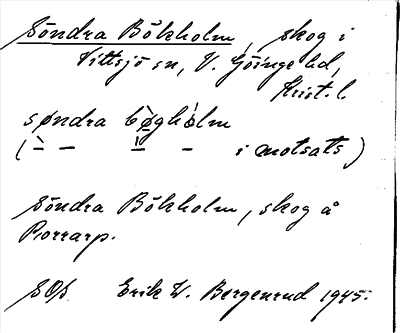 Söndra Bökholm, skog i
Vittsjö sn, V. Göinge hd,
Krist. l.
søndra bø̀ghòlm
(– – – – i motsats)
Söndra Bökholm, skog å
Porrarp.
SOs. Erik W. Bergenrud 1945.